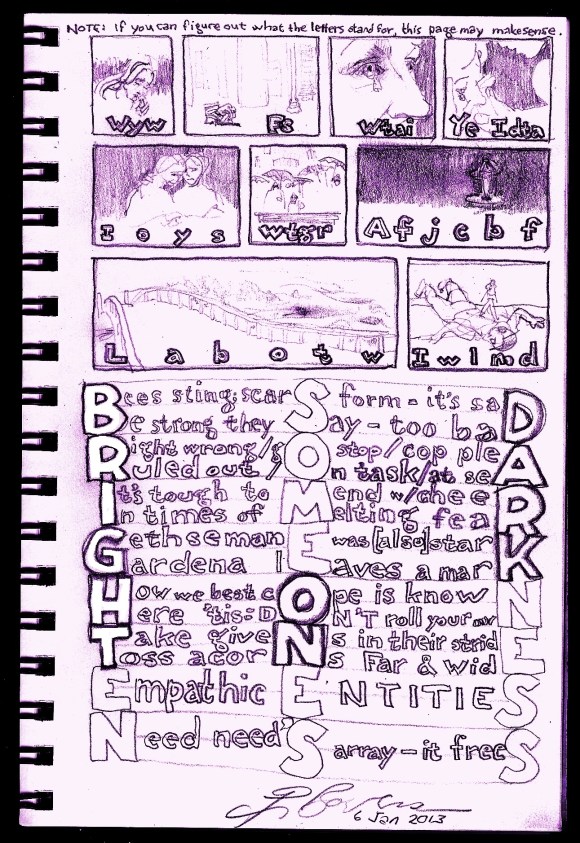 NOTE: if you can figure out what the letters stand for, this page may make sense.
Wyw Fs Wtai Ye Idta
I o y s Wtgr A f j c b f
L a b o t w I w l m d
Bees sting; scarS form - it's saD
Be strong they Say - too baD
Right wrong/gO stop/cop pleA
Ruled out/On task/at seA
It's tough to Mend w/cheeR
In times of Melting feaR
GethsemanE was [also] starK
Gardena lEaves a marK
How we best cOpe is knowN
Here 'tis: DON'T roll your owN
Take giveNs in their stridE
Toss acorNs Far & widE
Empathic ENTITIES
Need need'S array - it freeS
6 Jan 2013